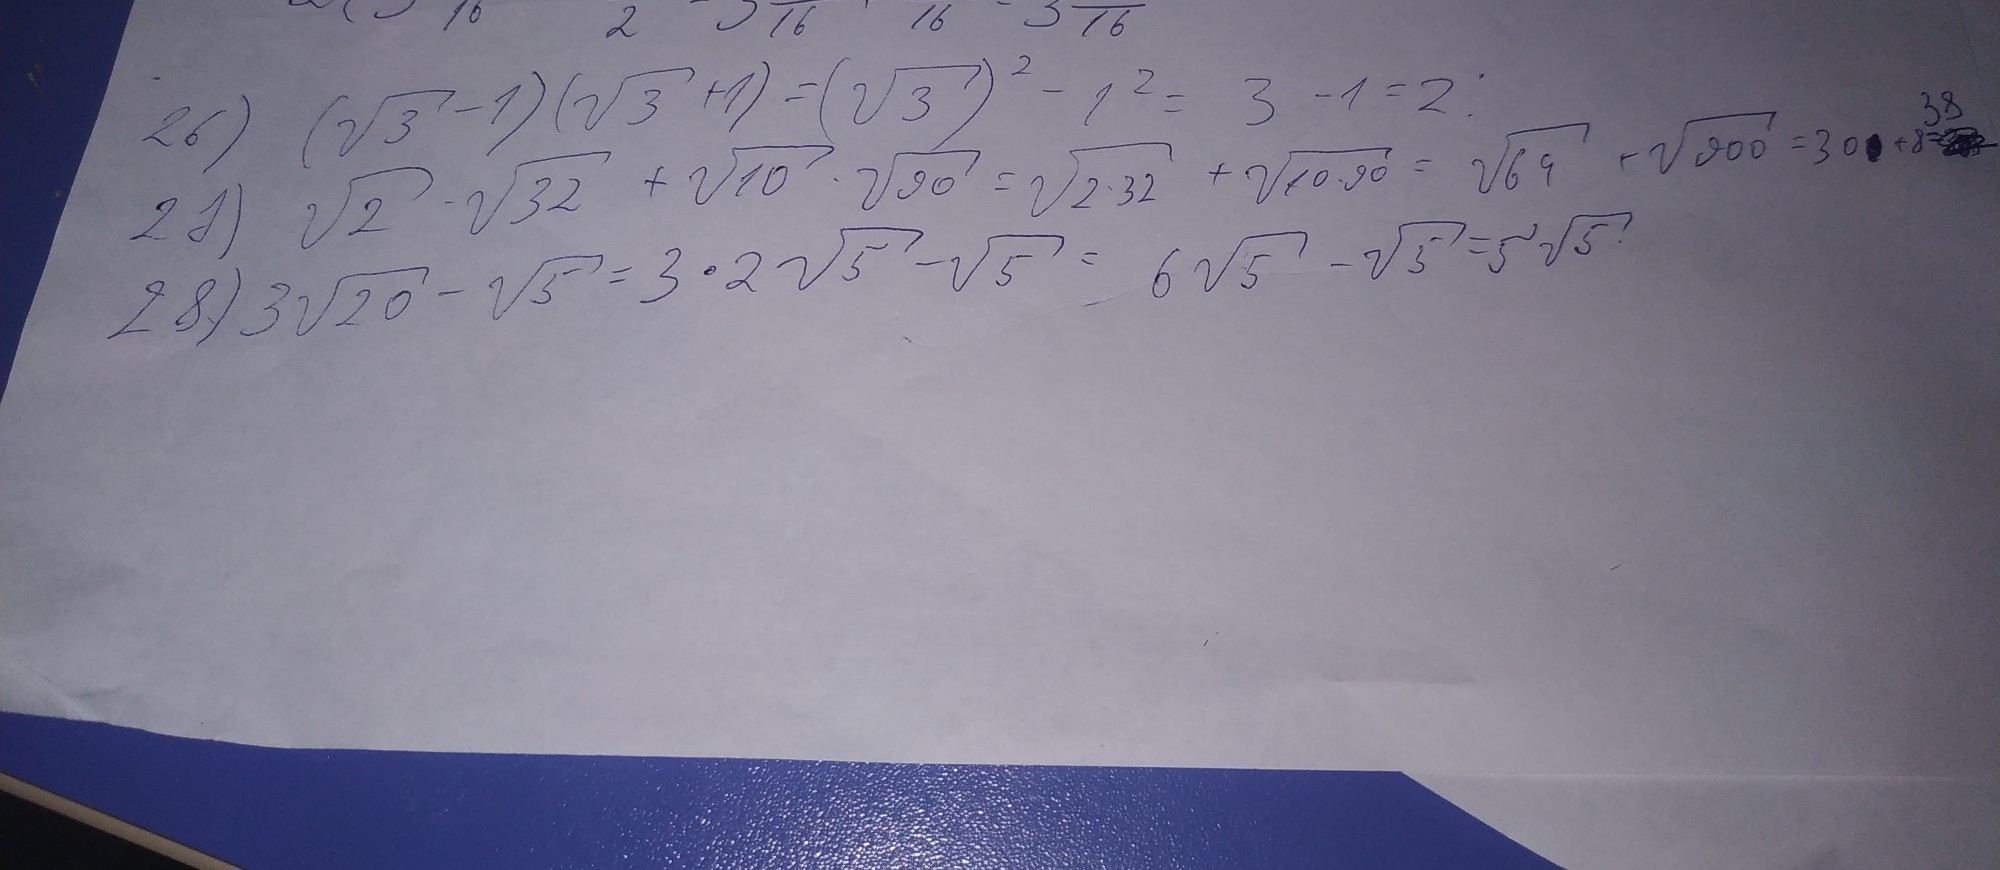 16 2 16 16 3 16
26) (√3 -1)(√3 +1) = (√3)² - 1² = 3 - 1 = 2.
27) √2 · √32 + √10 · √90 = √2·32 + √10·90 = √64 + √900 = 30 + 8 = 38
28) 3√20 - √5 = 3·2√5 - √5 = 6√5 - √5 = 5√5.